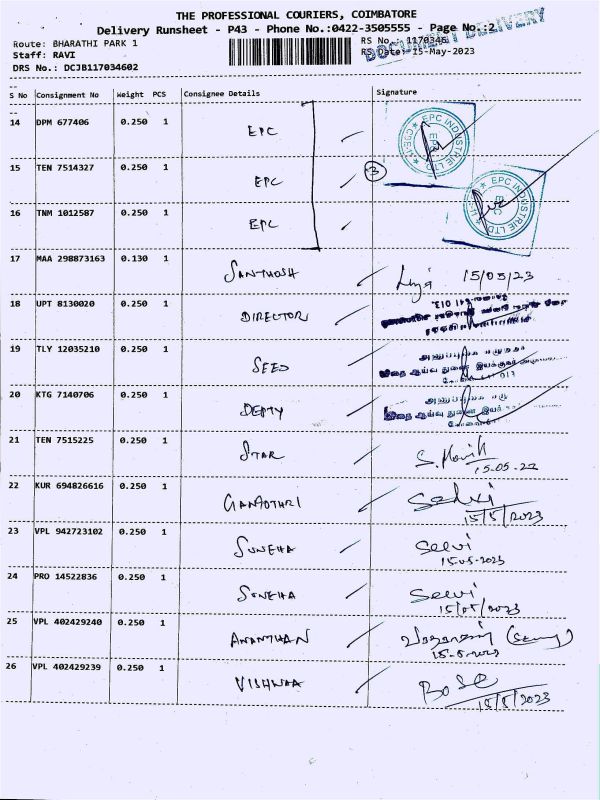 THE PROFESSIONAL COURIERS, COIMBATORE
Delivery Runsheet - P43 - Phone No.:0422-3505555 - Page No.:2
DOCUMENT DELIVERY
Route: BHARATHI PARK 1 RS No.: 1170346
Staff: RAVI RS Date: 15-May-2023
DRS No.: DCJB117034602
S No Consignment No Weight PCS Consignee Details Signature
14 DPM 677406 0.250 1 EPC EPC INDUSTRIE LTD
15 TEN 7514327 0.250 1 EPC 3
16 TNM 1012587 0.250 1 EPC EPC INDUSTRIE LTD
17 MAA 298873163 0.130 1 SANTHOSH 15/05/23
18 UPT 8130020 0.250 1 DIRECTOR
19 TLY 12035210 0.250 1 SEED
20 KTG 7140706 0.250 1 DEPTY
21 TEN 7515225 0.250 1 STAR
22 KUR 694826616 0.250 1 GANGOTHRI Selvi
15/5/2023
23 VPL 942723102 0.250 1 SUNEHA Selvi
15.05.2023
24 PRO 14522836 0.250 1 SUNEHA Selvi
15/05/2023
25 VPL 402429240 0.250 1 ANANTHAN
15-5-2023
26 VPL 402429239 0.250 1 VISHWAA BOSE
15/5/2023